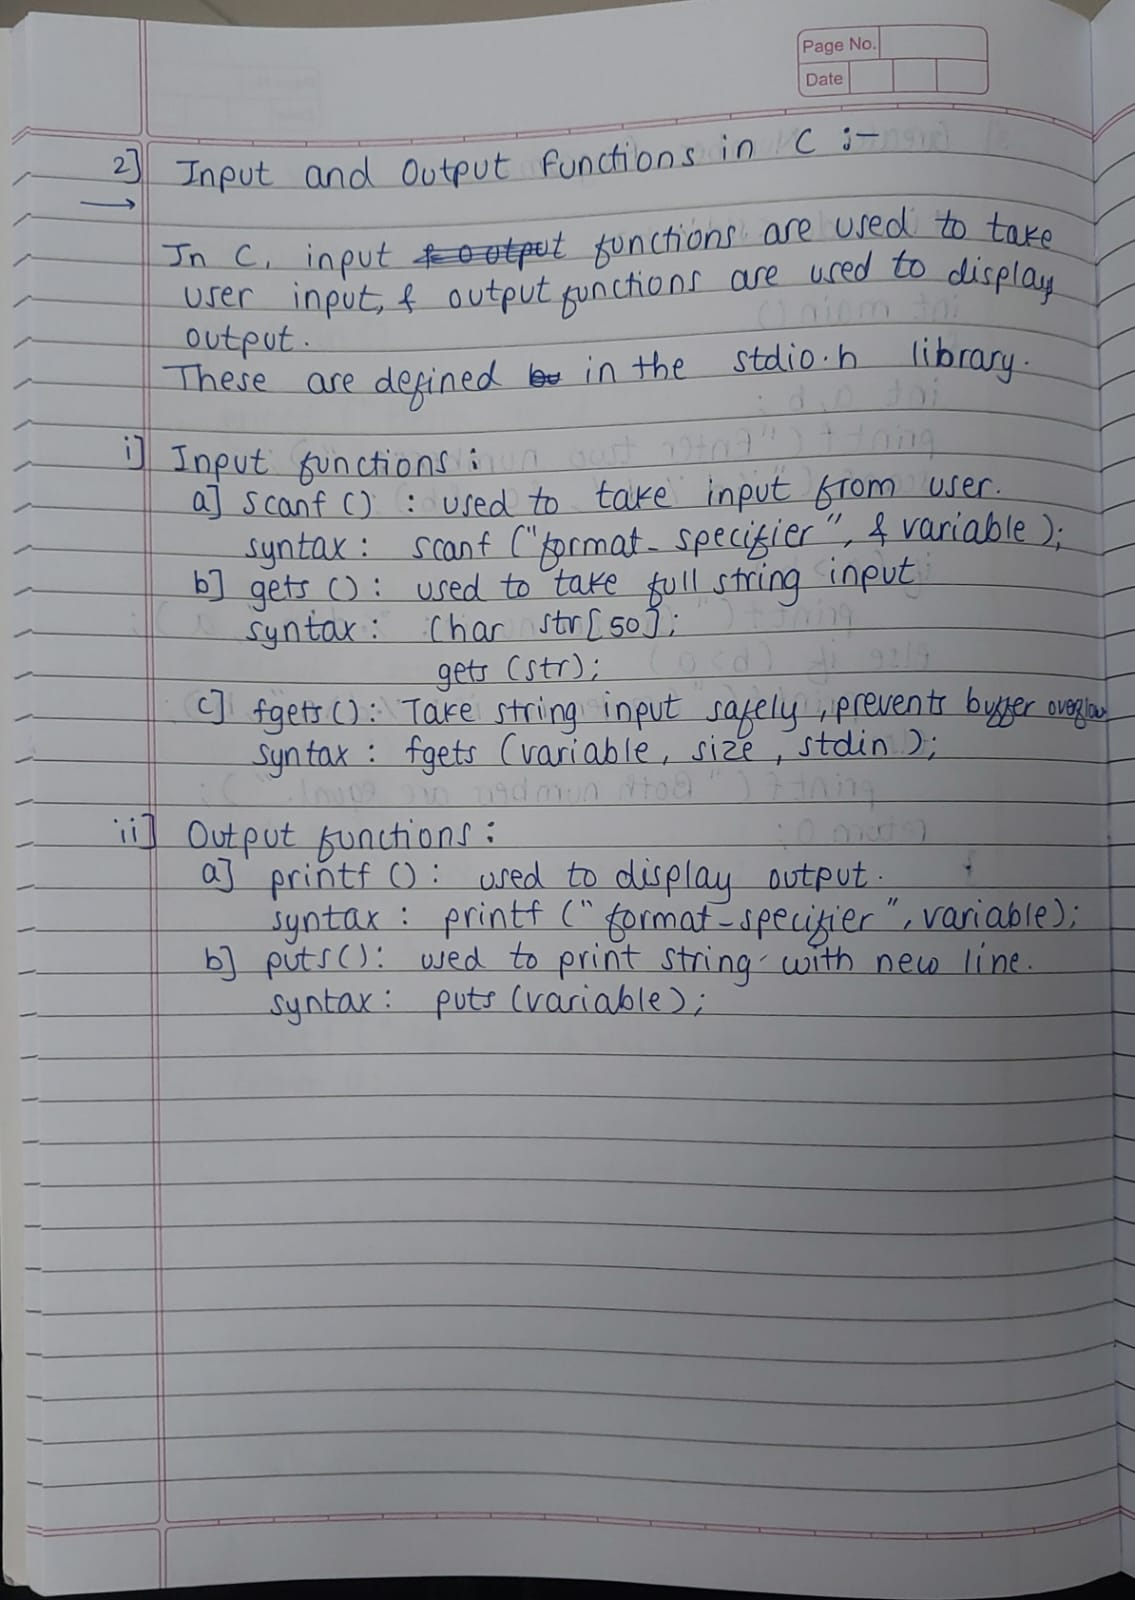 Page No.
Date
2] Input and Output functions in C :-
In C, input functions are used to take
user input, & output functions are used to display
output.
These are defined in the stdio.h library.
i] Input functions :
a] scanf () : used to take input from user.
syntax : scanf ("format-specifier", & variable );
b] gets () : used to take full string input
syntax : Char str[50];
gets (str);
c] fgets () : Take string input safely, prevents buffer overflow
syntax : fgets (variable, size, stdin );
ii] Output functions :
a] printf () : used to display output.
syntax : printf ("format-specifier", variable);
b] puts() : used to print string with new line.
syntax : puts (variable);